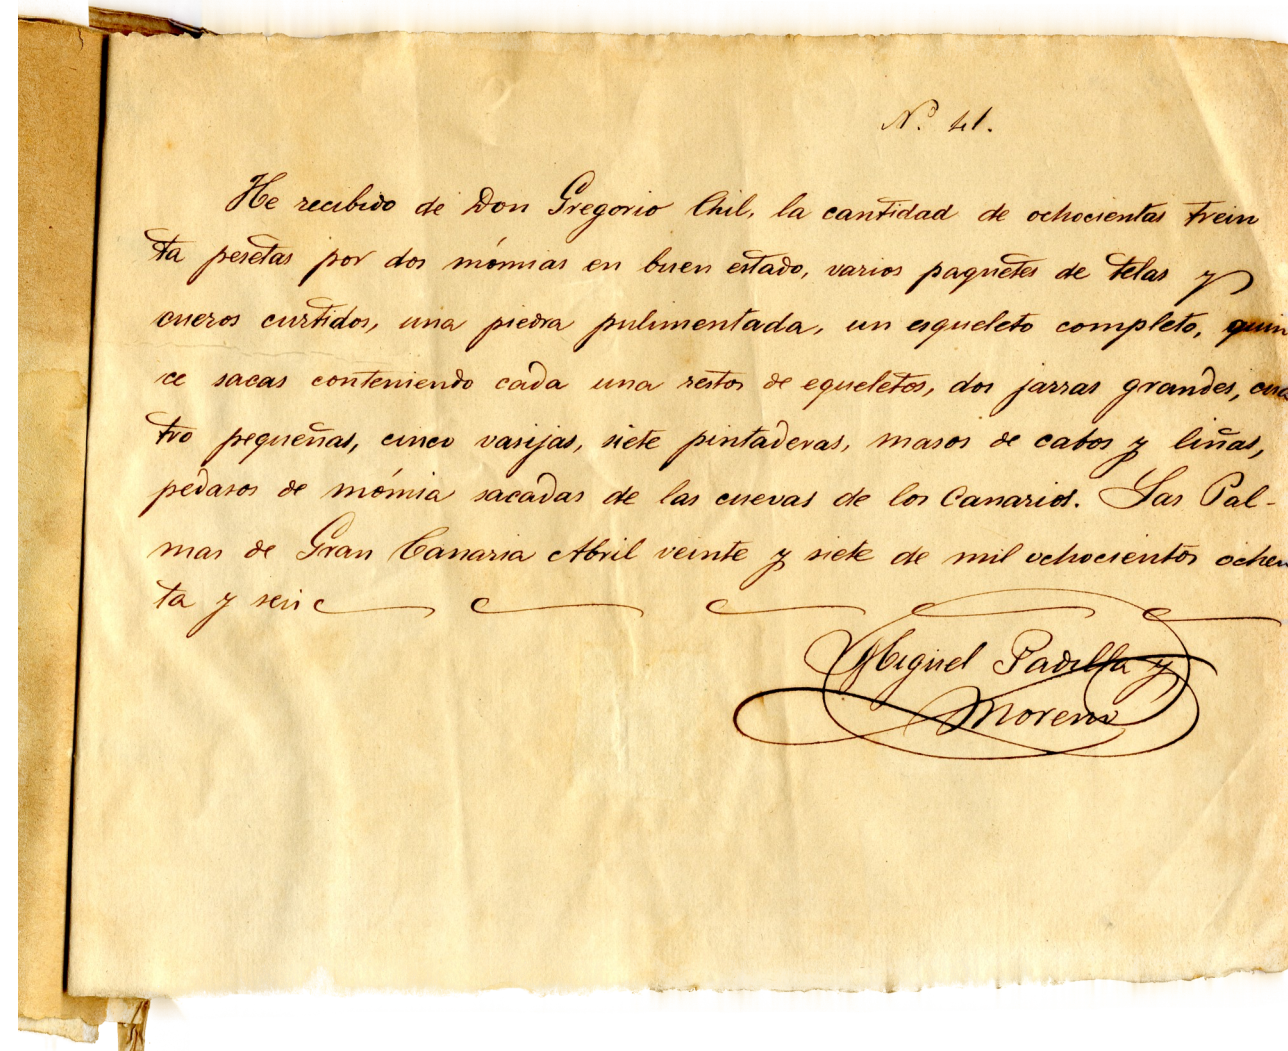 Nº 41.
He recibido de Don Gregorio Chil, la cantidad de ochocientas trein
ta pesetas por dos mómias en buen estado, varios paquetes de telas y
cueros curtidos, una piedra pulimentada, un esqueleto completo, quin
ce sacas conteniendo cada una restos de equeletos, dos jarras grandes, cua
tro pequeñas, cinco vasijas, siete pintaderas, masos de cabos y liñas,
pedasos de mómia sacadas de las cuevas de los Canarios. Las Pal-
mas de Gran Canaria Abril veinte y siete de mil ochocientos ochen
ta y seis
Miguel Padilla y
Moreno